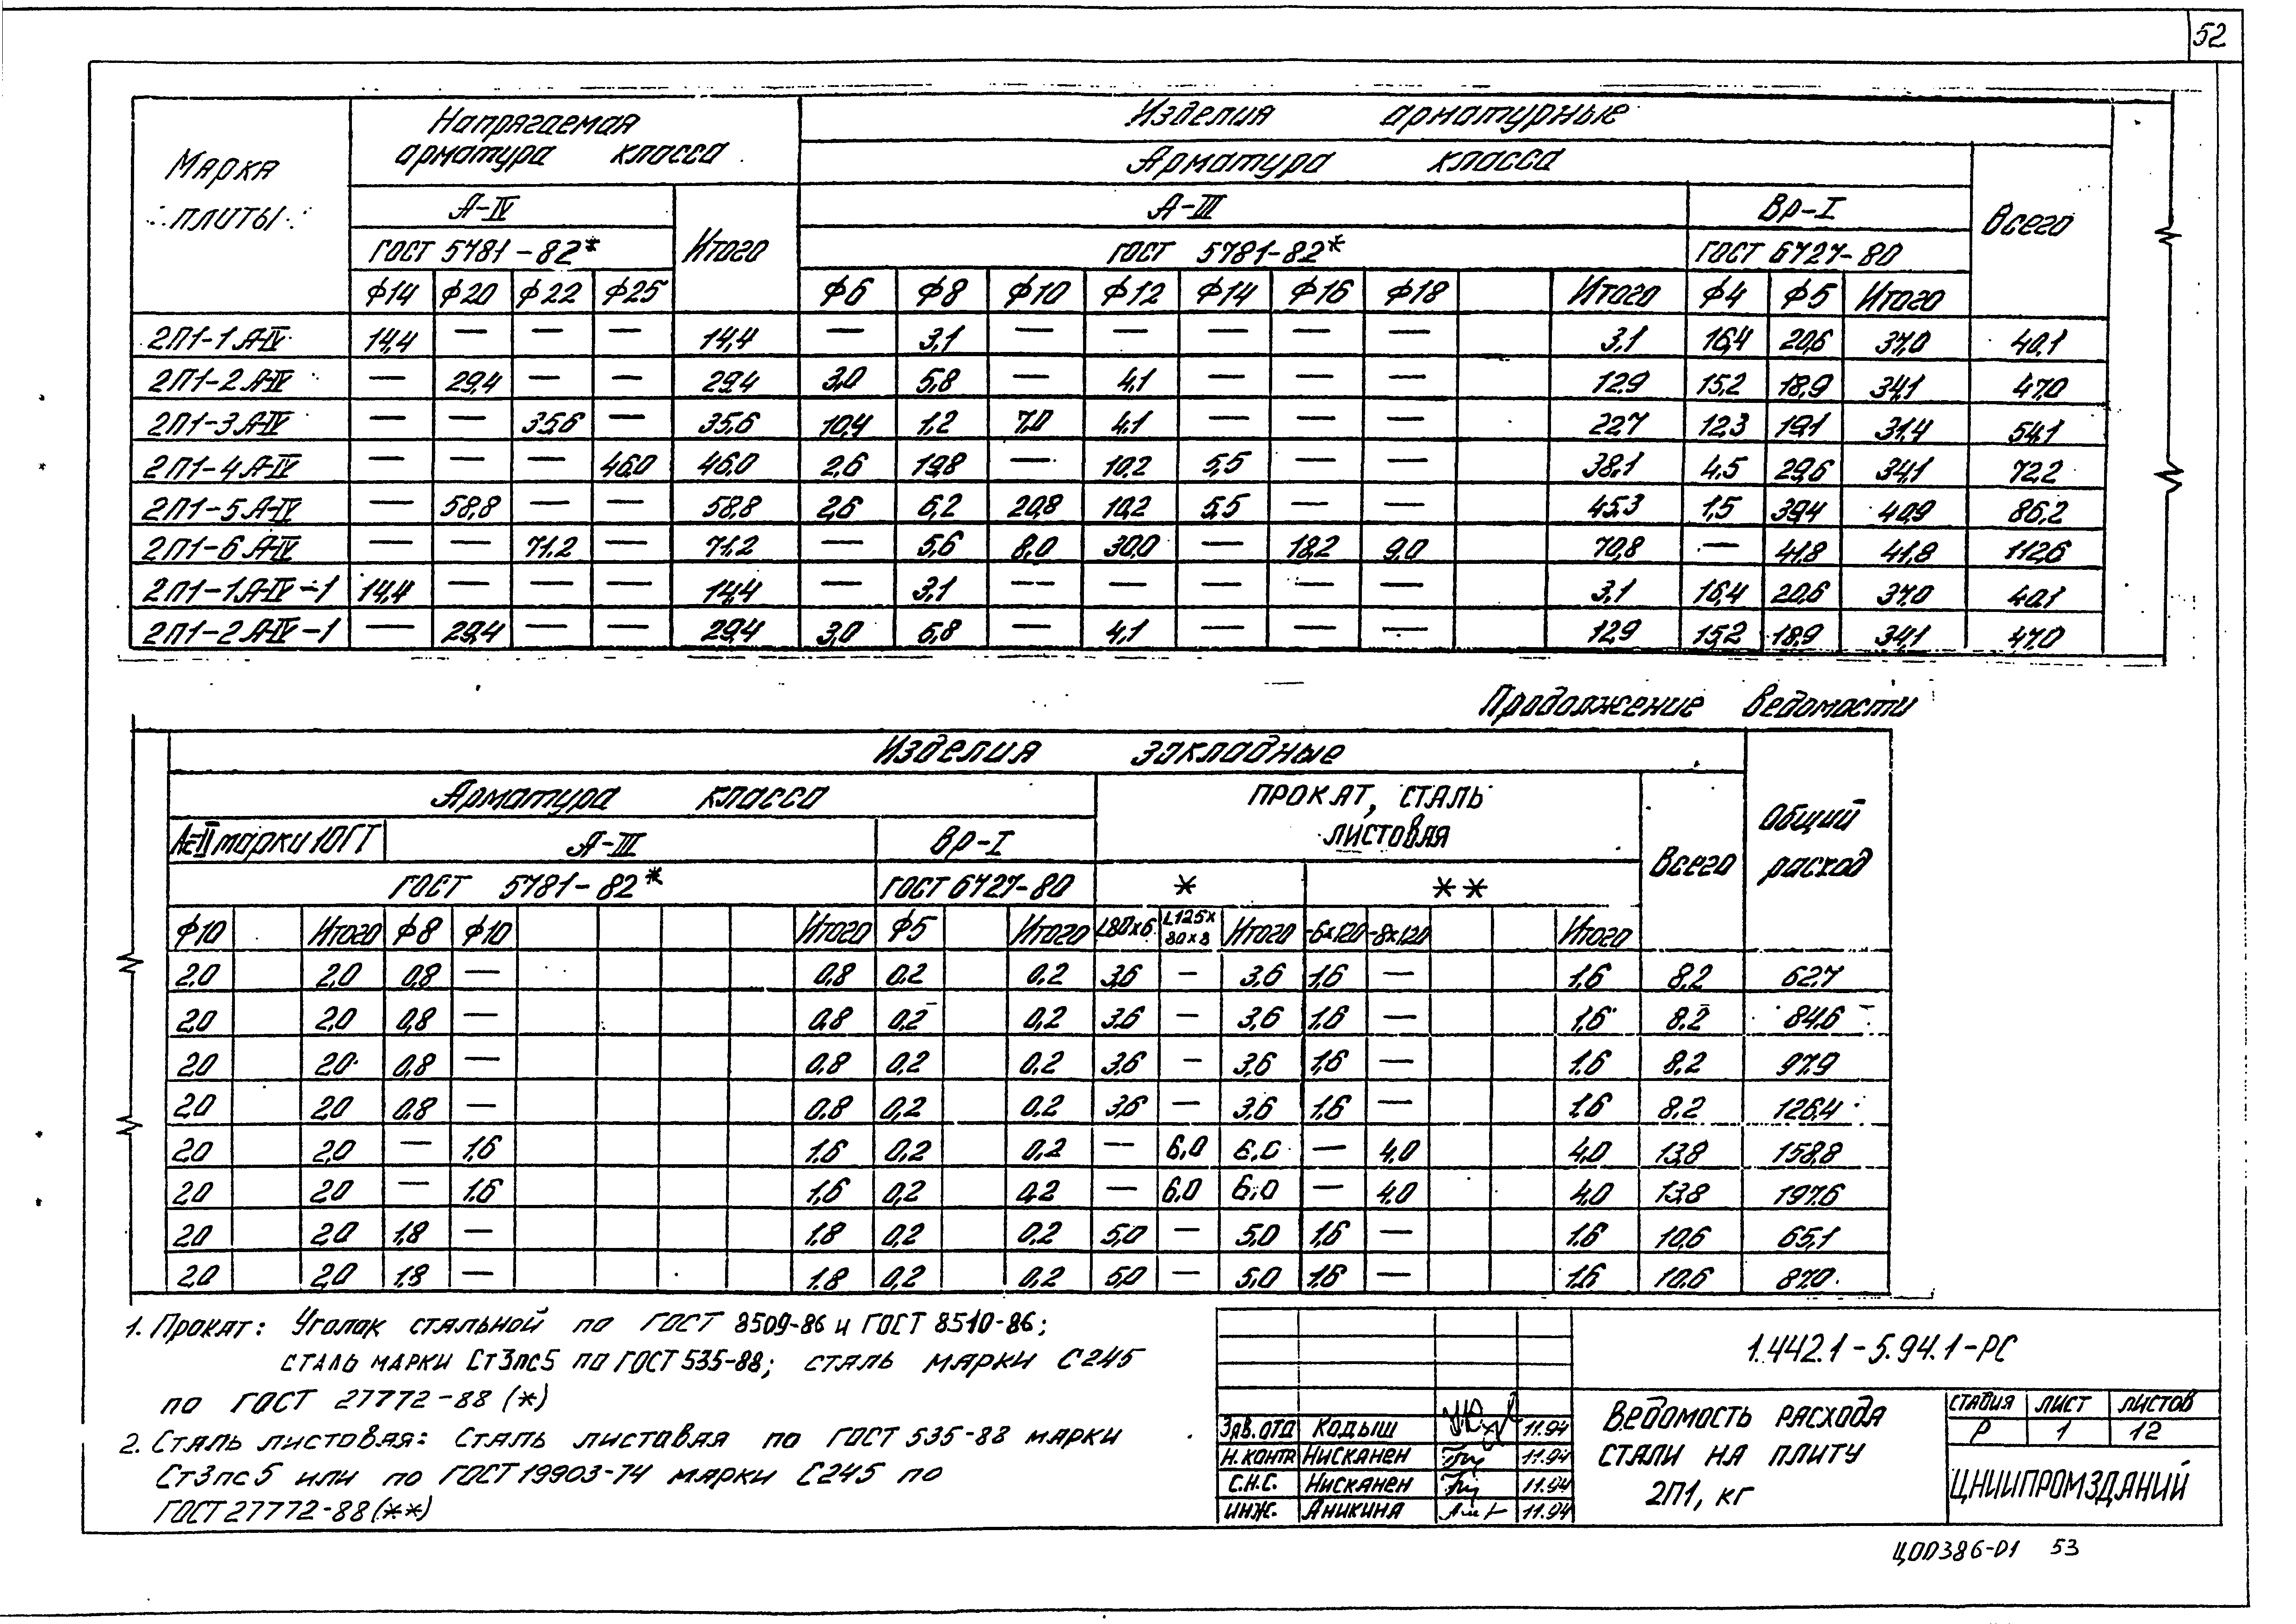 52
Марка плиты
Напрягаемая арматура класса
Изделия арматурные
Арматура класса
А-IV
Итого
А-III
Вр-I
Всего
ГОСТ 5781-82*
ГОСТ 5781-82*
ГОСТ 6727-80
ф14 ф20 ф22 ф25 ф6 ф8 ф10 ф12 ф14 ф16 ф18 Итого ф4 ф5 Итого
2П1-1А-IV 14,4 — — — 14,4 — 3,1 — — — — — 3,1 16,4 20,6 37,0 40,1
2П1-2А-IV — 29,4 — — 29,4 3,0 5,8 — 4,1 — — — 12,9 15,2 18,9 34,1 47,0
2П1-3А-IV — — 35,6 — 35,6 10,4 1,2 7,0 4,1 — — — 22,7 12,3 19,1 31,4 54,1
2П1-4А-IV — — — 46,0 46,0 2,6 19,8 — 10,2 5,5 — — 38,1 4,5 29,6 34,1 72,2
2П1-5А-IV — 58,8 — — 58,8 2,6 6,2 20,8 10,2 5,5 — — 45,3 1,5 39,4 40,9 86,2
2П1-6А-IV — — 71,2 — 71,2 — 5,6 8,0 30,0 — 18,2 9,0 70,8 — 41,8 41,8 112,6
2П1-1А-IV-1 14,4 — — — 14,4 — 3,1 — — — — — 3,1 16,4 20,6 37,0 40,1
2П1-2А-IV-1 — 29,4 — — 29,4 3,0 5,8 — 4,1 — — — 12,9 15,2 18,9 34,1 47,0
Продолжение ведомости
Изделия закладные
Общий расход
Арматура класса
Прокат, сталь листовая
Всего
Ас-II марки 10ГТ
А-III
Вр-I
ГОСТ 5781-82*
ГОСТ 6727-80
*
**
ф10 Итого ф8 ф10 Итого ф5 Итого L80x6 L125x80x8 Итого -6x120 -8x120 Итого
2,0 2,0 0,8 — 0,8 0,2 0,2 3,6 — 3,6 1,6 — 1,6 8,2 62,7
2,0 2,0 0,8 — 0,8 0,2 0,2 3,6 — 3,6 1,6 — 1,6 8,2 84,6
2,0 2,0 0,8 — 0,8 0,2 0,2 3,6 — 3,6 1,6 — 1,6 8,2 97,9
2,0 2,0 0,8 — 0,8 0,2 0,2 3,6 — 3,6 1,6 — 1,6 8,2 126,4
2,0 2,0 — 1,6 1,6 0,2 0,2 — 6,0 6,0 — 4,0 4,0 13,8 158,8
2,0 2,0 — 1,6 1,6 0,2 0,2 — 6,0 6,0 — 4,0 4,0 13,8 197,6
2,0 2,0 1,8 — 1,8 0,2 0,2 5,0 — 5,0 1,6 — 1,6 10,6 65,1
2,0 2,0 1,8 — 1,8 0,2 0,2 5,0 — 5,0 1,6 — 1,6 10,6 87,0
1. Прокат: Уголок стальной по ГОСТ 8509-86 и ГОСТ 8510-86;
сталь марки Ст3пс5 по ГОСТ 535-88; сталь марки С245
по ГОСТ 27772-88 (*)
2. Сталь листовая: Сталь листовая по ГОСТ 535-88 марки
Ст3пс5 или по ГОСТ 19903-74 марки С245 по
ГОСТ 27772-88 (**)
1.442.1-5.94.1-РС
Зав. отд Кодыш 11.94
Н. контр Нисканен 11.94
С.Н.С. Нисканен 11.94
Инж. Аникина 11.94
Ведомость расхода
стали на плиту
2П1, кг
Стадия Лист Листов
Р 1 12
ЦНИИПРОМЗДАНИЙ
Ц00386-01 53